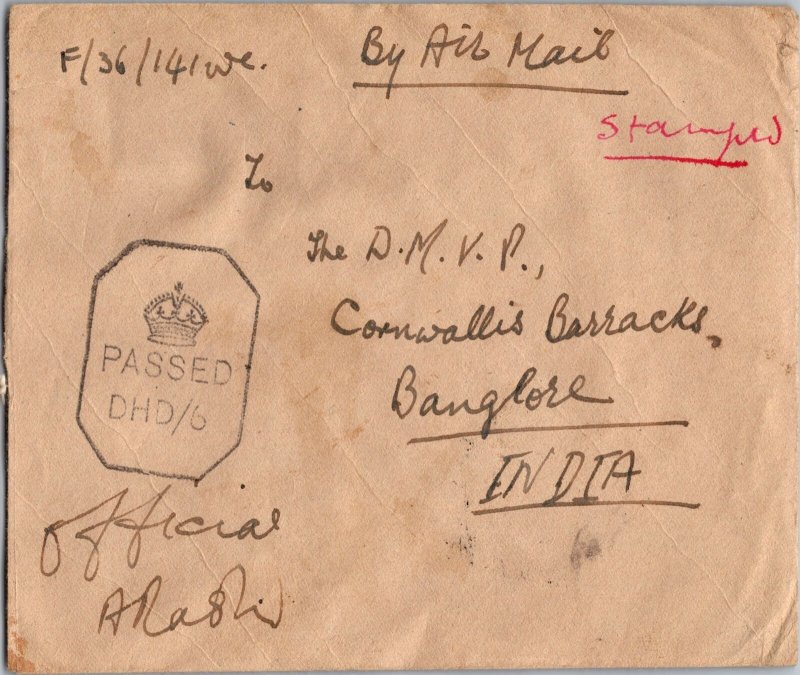 F/36/141we.
By Air Mail
Stamped
To
The D.M.V.P.,
Cornwallis Barracks,
Banglore
INDIA
PASSED
DHD/6
official